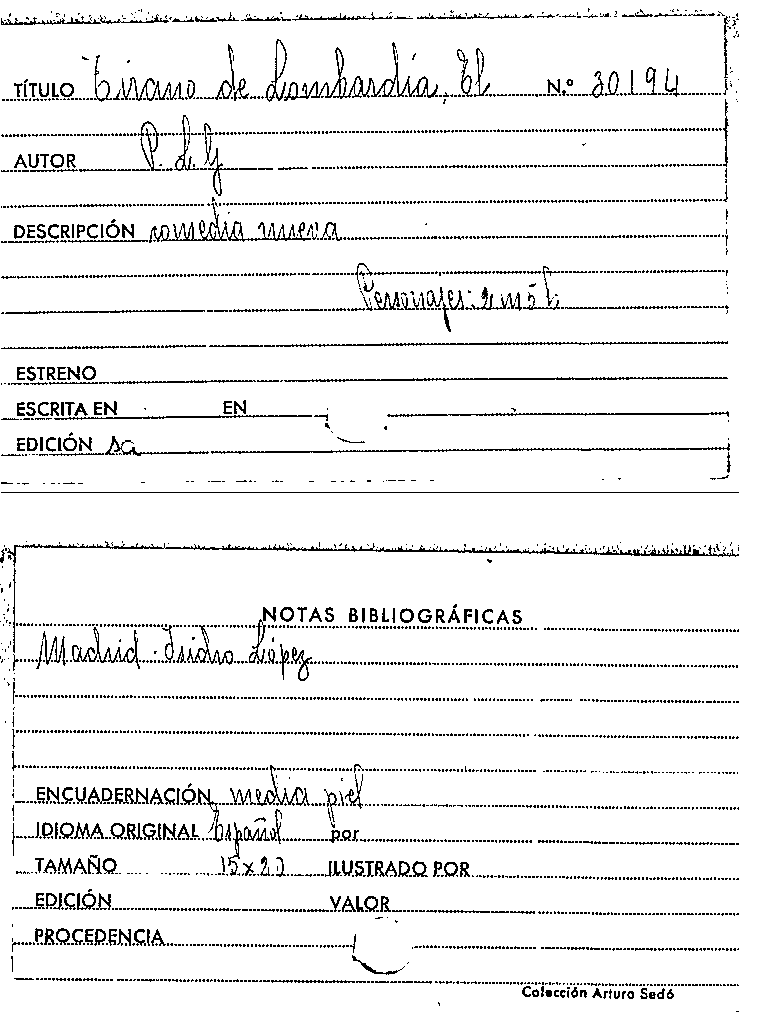 TÍTULO Tirano de Lombardía, El N.º 30194
AUTOR P. L. y
DESCRIPCIÓN comedia nueva
Personajes: 2 m 5 h
ESTRENO
ESCRITA EN EN
EDICIÓN sa
NOTAS BIBLIOGRÁFICAS
Madrid - Isidro López
ENCUADERNACIÓN media piel
IDIOMA ORIGINAL Español por
TAMAÑO 15 x 20 ILUSTRADO POR
EDICIÓN VALOR
PROCEDENCIA
Colección Arturo Sedó